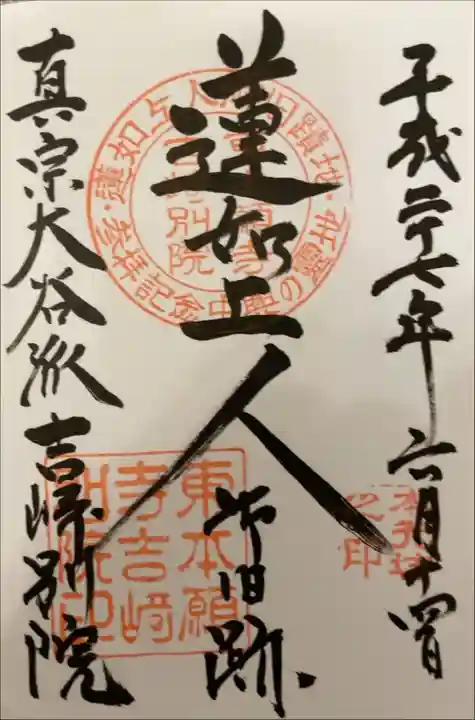 平成二十七年 六月十四日
蓮如上人
御旧跡
真宗大谷派 吉崎別院
蓮如上人御旧蹟地
吉崎別院
参拝記念
東本願
寺吉崎
別院印
之印